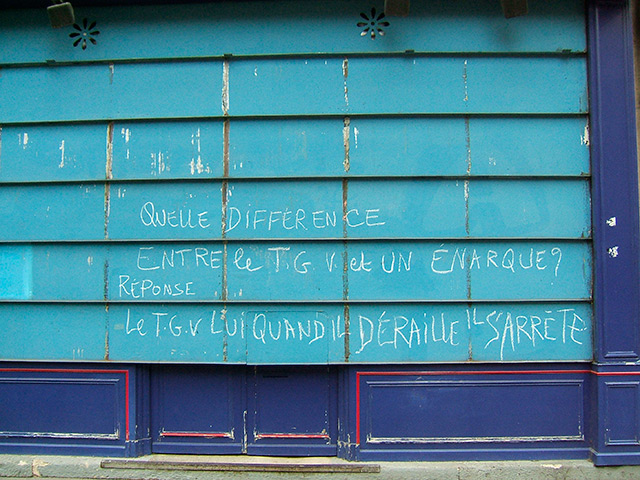 QUELLE DIFFÉRENCE
ENTRE le T.G.V et UN ÉNARQUE?
RÉPONSE
Le T.G.V LUI QUAND IL DÉRAILLE IL S'ARRÊTE